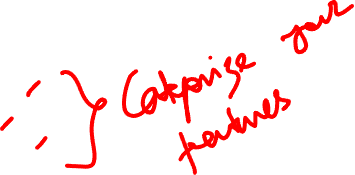 Catgorize your
features